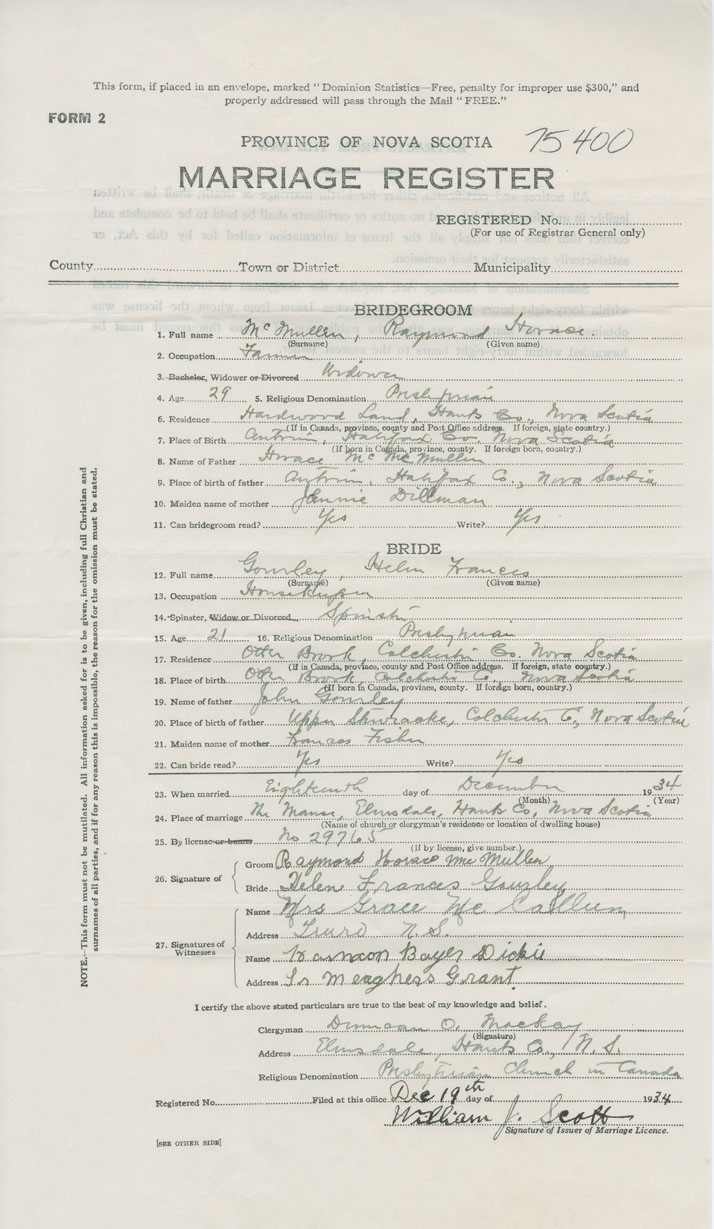 This form, if placed in an envelope, marked "Dominion Statistics—Free, penalty for improper use $300," and
properly addressed will pass through the Mail "FREE."
FORM 2
PROVINCE OF NOVA SCOTIA 75400
MARRIAGE REGISTER
REGISTERED No.
(For use of Registrar General only)
County Town or District Municipality
BRIDEGROOM
1. Full name McMullen, Raymond Horace.
(Surname) (Given name)
2. Occupation Farmer
3. Bachelor, Widower or Divorced Widower
4. Age 29 5. Religious Denomination Presbyterian
6. Residence Hardwood Land, Hants Co., Nova Scotia
(If in Canada, province, county and Post Office address. If foreign, state country.)
7. Place of Birth Antrim, Halifax Co. Nova Scotia
(If born in Canada, province, county. If foreign born, country.)
8. Name of Father Horace Mc McMullen
9. Place of birth of father Antrim, Halifax Co., Nova Scotia
10. Maiden name of mother Jennie Dillman
11. Can bridegroom read? Yes Write? Yes
BRIDE
12. Full name Gourley, Helen Frances
(Surname) (Given name)
13. Occupation Housekeeper
14. Spinster, Widow or Divorced Spinster
15. Age 21 16. Religious Denomination Presbyterian
17. Residence Otter Brook, Colchester Co. Nova Scotia
(If in Canada, province, county and Post Office address. If foreign, state country.)
18. Place of birth Otter Brook, Colchester Co., Nova Scotia
(If born in Canada, province, county. If foreign born, country.)
19. Name of father John Gourley
20. Place of birth of father Upper Stewiacke, Colchester Co., Nova Scotia
21. Maiden name of mother Frances Fisher
22. Can bride read? Yes Write? Yes
23. When married Eighteenth day of December 1934
(Month) (Year)
24. Place of marriage The Manse, Elmsdale, Hants Co., Nova Scotia
(Name of church or clergyman's residence or location of dwelling house)
25. By license or banns No 29765
(if by license, give number)
26. Signature of
Groom Raymond Horace McMullen
Bride Helen Frances Gourley
27. Signatures of Witnesses
Name Mrs Grace McCallum
Address Truro N.S.
Name Bayer Dickie
Address Meaghers Grant
I certify the above stated particulars are true to the best of my knowledge and belief.
Clergyman Duncan O. Mackay
(Signature)
Address Elmsdale, Hants Co., N.S.
Religious Denomination Presbyterian Church in Canada
Registered No. Filed at this office Dec 19th day of 1934
William J. Scott
Signature of Issuer of Marriage Licence.
[SEE OTHER SIDE]
NOTE.—This form must not be mutilated. All information asked for is to be given, including full Christian and
surnames of all parties, and if for any reason this is impossible, the reason for the omission must be stated.